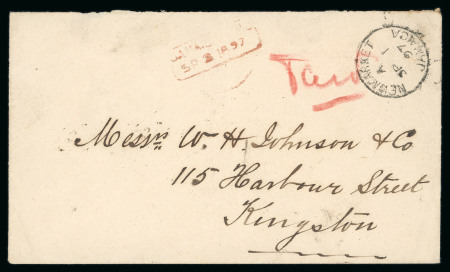 SP 2 1897
NEWMARKET
A
SP 1
97
JAMAICA
Messrs W. H. Johnson & Co
115 Harbour Street
Kingston